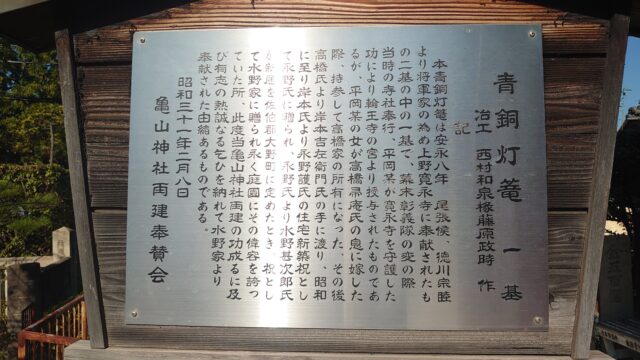 青銅灯篭 一基
冶工 西村和泉椽藤原政時 作
記
本青銅灯篭は安永八年 尾張侯、徳川宗睦
より将軍家の為め上野寛永寺に奉献されたも
の二基の中の一基で、幕末彰義隊の変の際
当時の寺社奉行、平岡某が寛永寺を守護した
功により輪王寺の宮より授与されたものであ
るが、平岡某の女が高橋帚庵氏の息に嫁した
際、持参して高橋家の所有になった。その後
高橋氏より岸本吉左衛門氏の手に渡り、昭和
に至り岸本氏より永野護氏の住宅新築祝とし
て永野氏に贈られ、永野氏より水野甚次郎氏
が新庭を佐伯郡大野町に定めたとき、祝とし
て水野家に贈られ永く庭園にその偉容を誇っ
ていた所、此度当亀山神社再建の功成るに及
び有志の熱誠なる乞ひを納れて水野家より
奉献された由緒あるものである。
昭和三十一年二月八日
亀山神社再建奉賛会